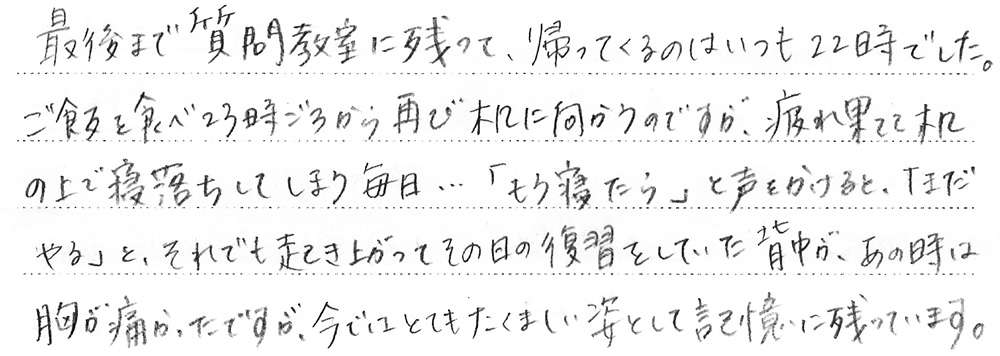 最後まで質問教室に残って、帰ってくるのはいつも22時でした。
ご飯を食べ23時ごろから再び机に向かうのですが、疲れ果てて机
の上で寝落ちしてしまう毎日…「もう寝たら」と声をかけると、「まだ
やる」と、それでも起き上がってその日の復習をしていた背中が、あの時は
胸が痛かったですが、今ではとてもたくましい姿として記憶に残っています。